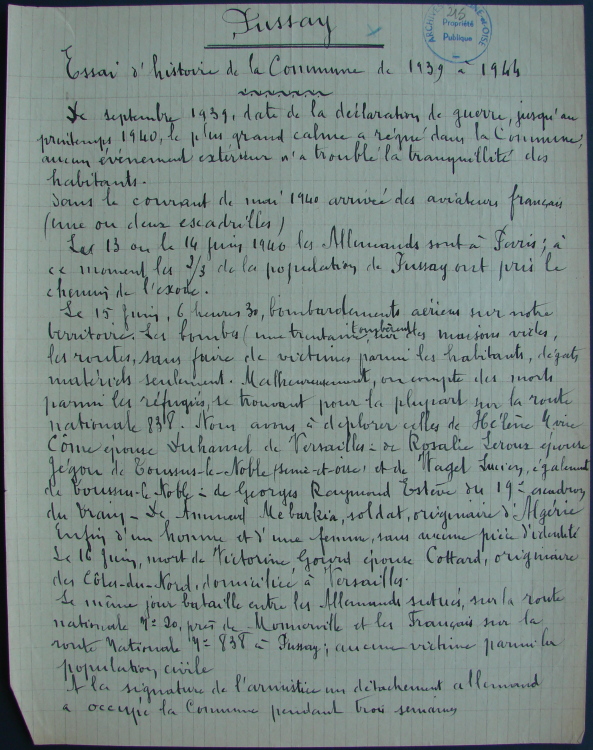 Pussay
ARCHIVES
ET-OISE
215
Propriété
Publique
Essai d'histoire de la Commune de 1939 à 1944
De septembre 1939, date de la déclaration de guerre, jusqu'au
printemps 1940, le plus grand calme a régné dans la Commune;
aucun événement extérieur n'a troublé la tranquillité des
habitants.
Dans le courant de mai 1940 arrivée des aviateurs français
(une ou deux escadrilles)
Les 13 ou le 14 juin 1940 les Allemands sont à Paris; à
ce moment les 2/3 de la population de Pussay ont pris le
chemin de l'exode.
Le 15 juin, 6 heures 30, bombardements aériens sur notre
territoire. Les bombes (une trentaine) tombèrent sur des maisons vides,
les routes, sans faire de victimes parmi les habitants, dégâts
matériels seulement. Malheureusement, on compte des morts
parmi les réfugiés, se trouvant pour la plupart sur la route
nationale 838. Nous avons à déplorer celles de Hélène
Côme épouse Duhamel de Versailles - de Rosalie Leroux épouse
Jégou de Toussus-le-Noble (Seine-et-Oise) et de Nagel Lucien, également
de Toussus-le-Noble - de Georges Raymond Estève du 19e escadron
du train - De Mebarkia, soldat, originaire d'Algérie
Enfin d'un homme et d'une femme, sans aucune pièce d'identité
Le 16 juin, mort de Victorine épouse Cottard, originaire
des Côtes-du-Nord, domiciliée à Versailles.
Le même jour bataille entre les Allemands situés, sur la route
nationale N° 20, près de Monnerville et les Français sur la
route Nationale N° 838 à Pussay; aucune victime parmi la
population civile
A la signature de l'armistice un détachement allemand
a occupé la Commune pendant trois semaines